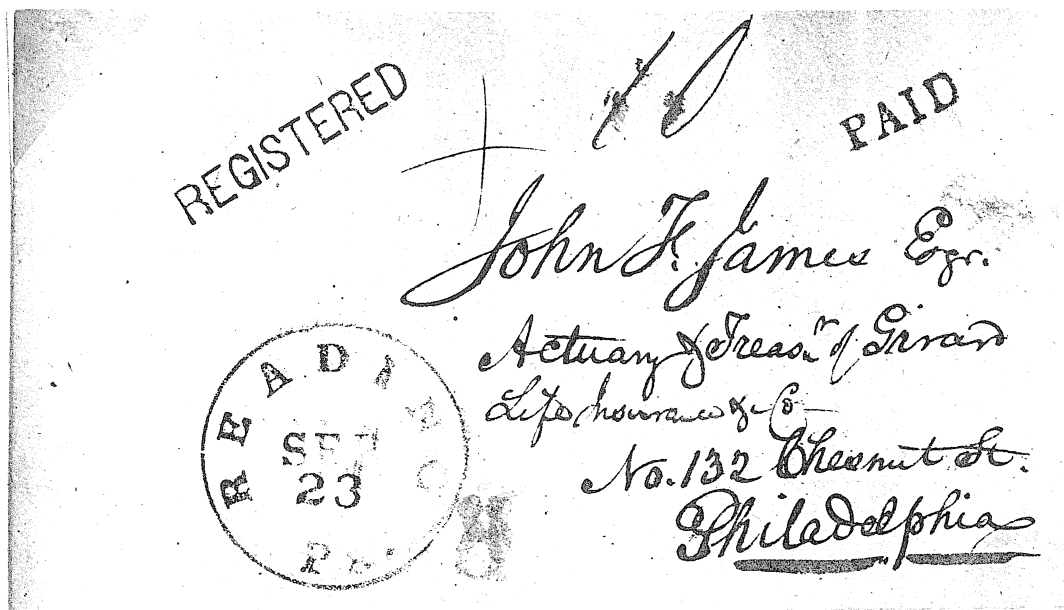 REGISTERED
PAID
John F. James Esqr.
Actuary & Treasr. of Girard
Life Insurance &c Co
No. 132 Chesnut St.
Philadelphia
READING
SEP
23